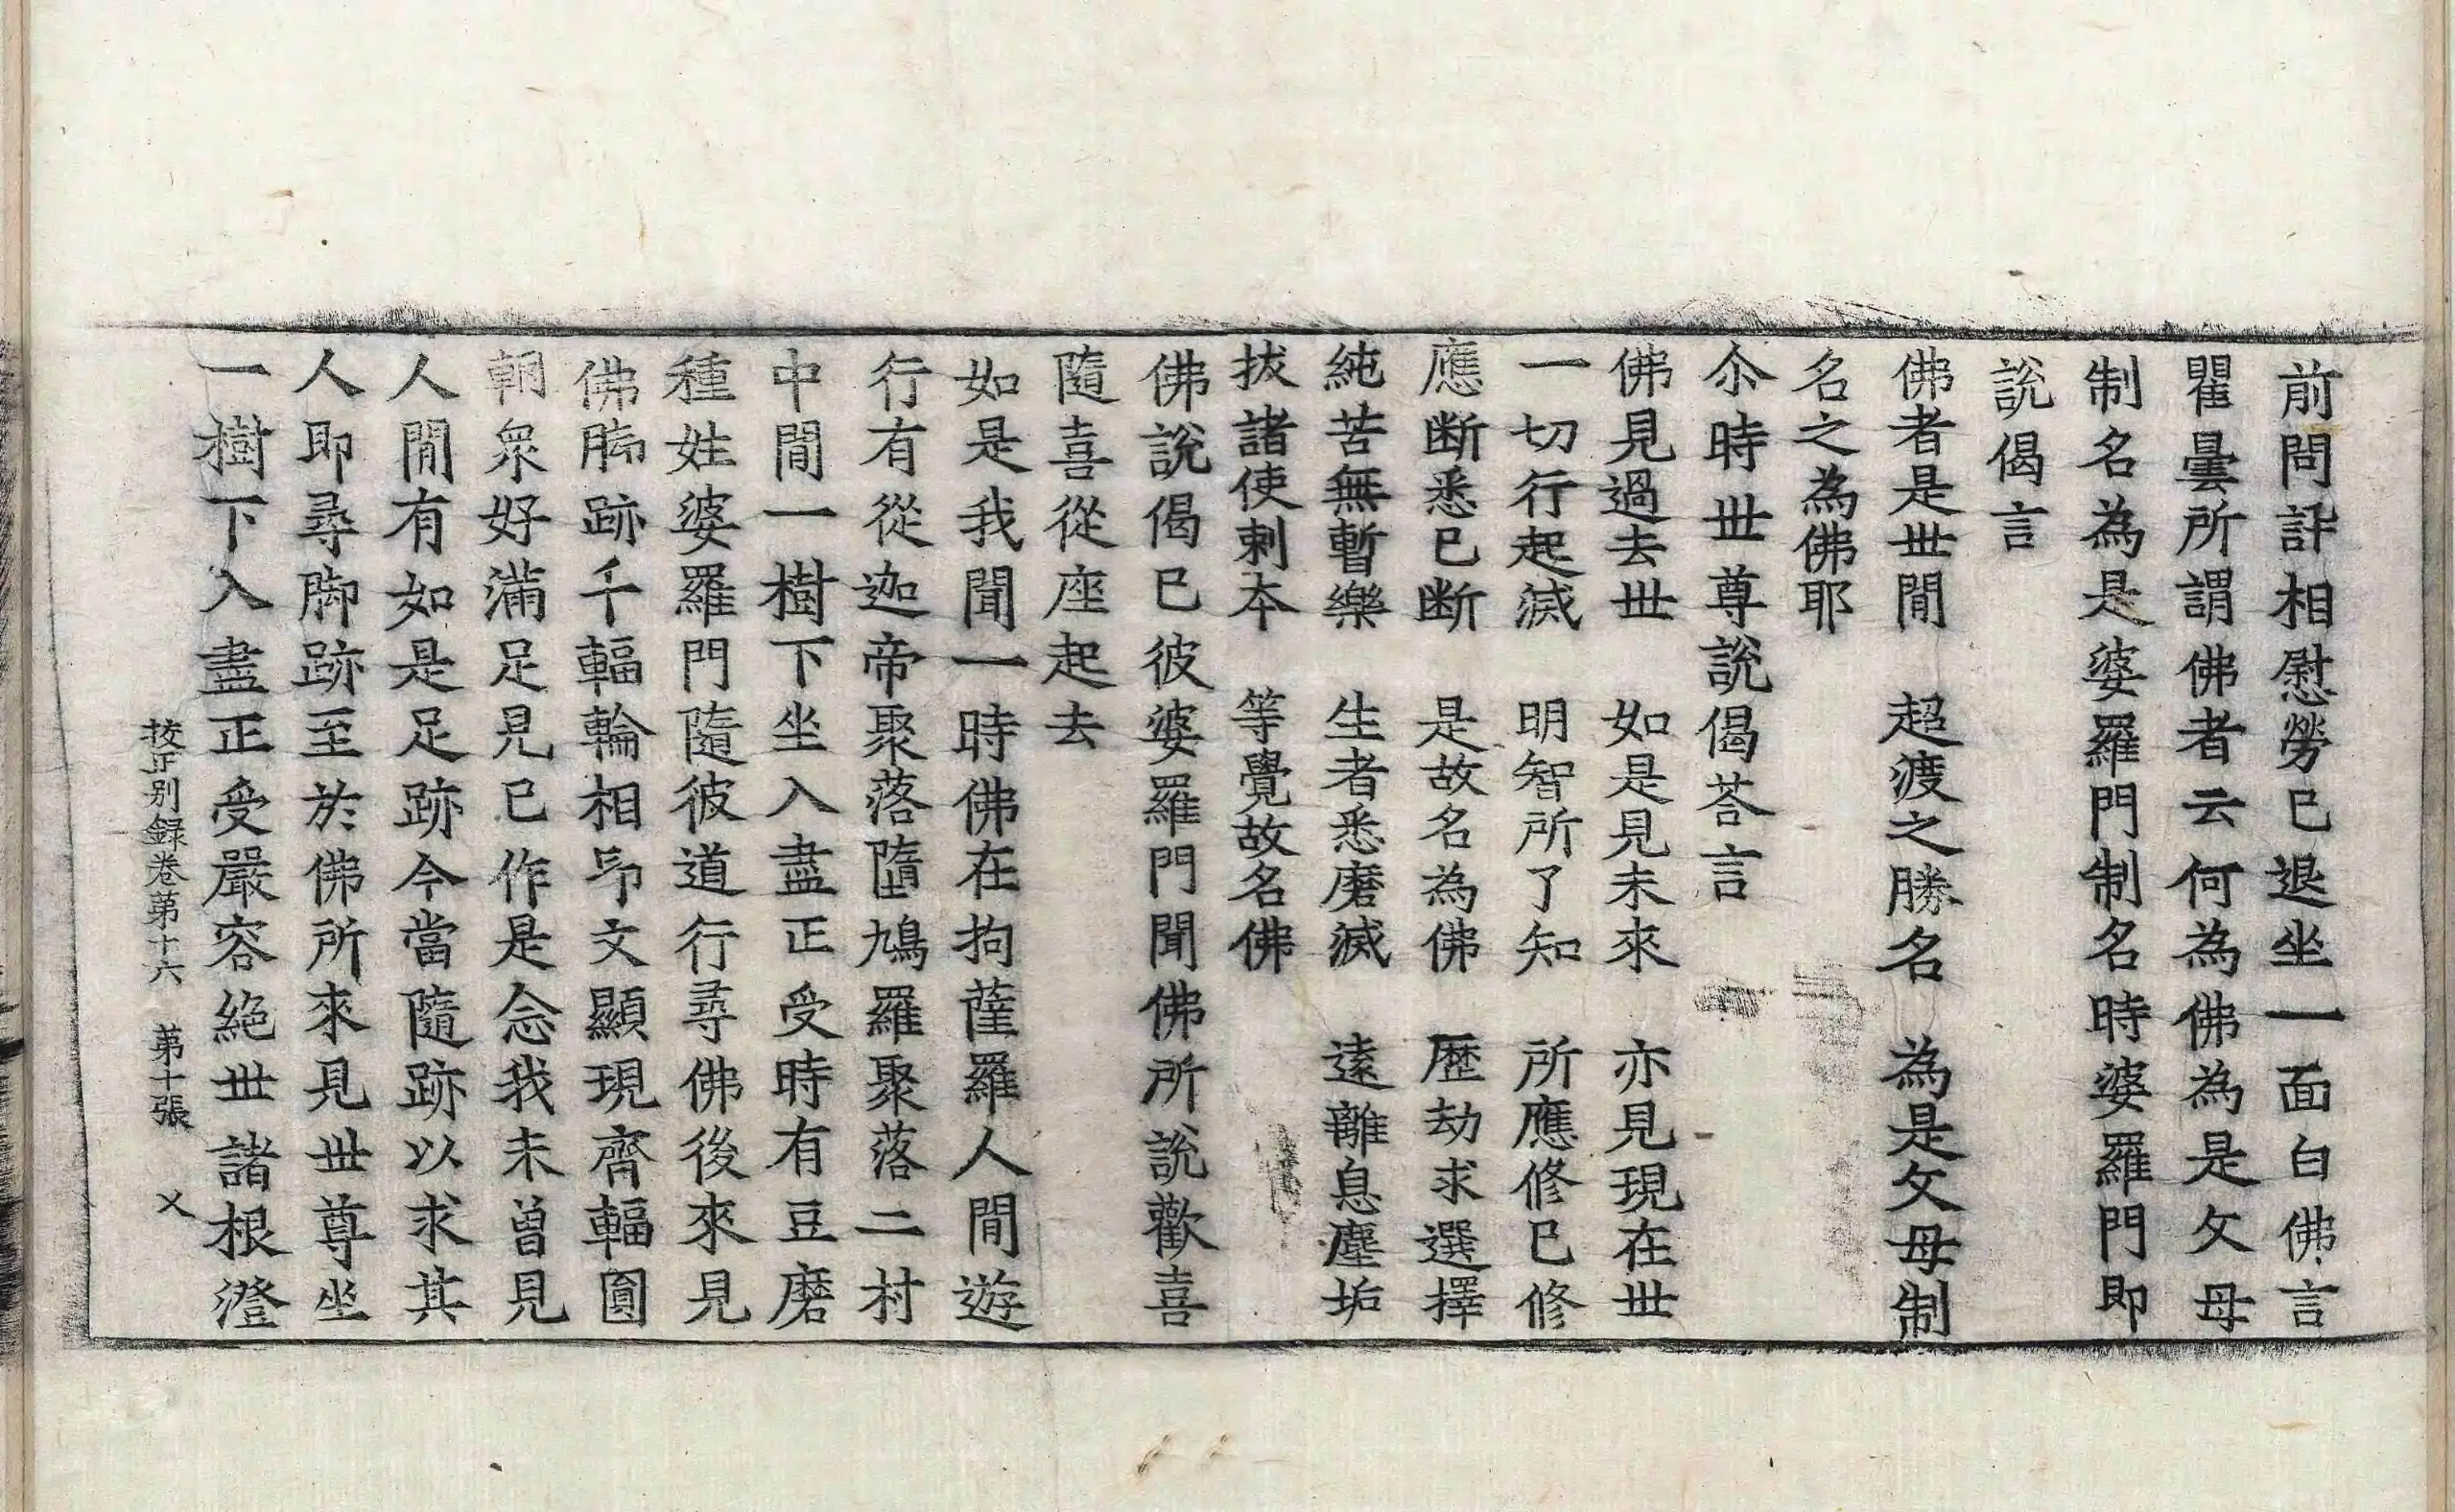 前問訊相慰勞已退坐一面白佛言
瞿曇所謂佛者云何為佛為是父母
制名為是婆羅門制名時婆羅門即
說偈言
佛者是世間　超渡之勝名　為是父母制
名之為佛耶
尒時世尊說偈荅言
佛見過去世　如是見未來　亦見現在世
一切行起滅　明智所了知　所應修已修
應断悉已断　是故名為佛　歷劫求選擇
純苦無暫樂　生者悉磨滅　遠離息塵垢
拔諸使刺本　等覺故名佛
佛說偈已彼婆羅門聞佛所說歡喜
隨喜從座起去
如是我聞一時佛在拘薩羅人間遊
行有從迦帝聚落墮鳩羅聚落二村
中間一樹下坐入盡正受時有豆磨
種姓婆羅門隨彼道行尋佛後來見
佛脚跡千輻輪相印文顯現齊輻圓
輞眾好滿足見已作是念我未曾見
人間有如是足跡今當隨跡以求其
人即尋脚跡至於佛所來見世尊坐
一樹下入盡正受嚴容絕世諸根澄
挍正別錄卷第十六　第十張　乂